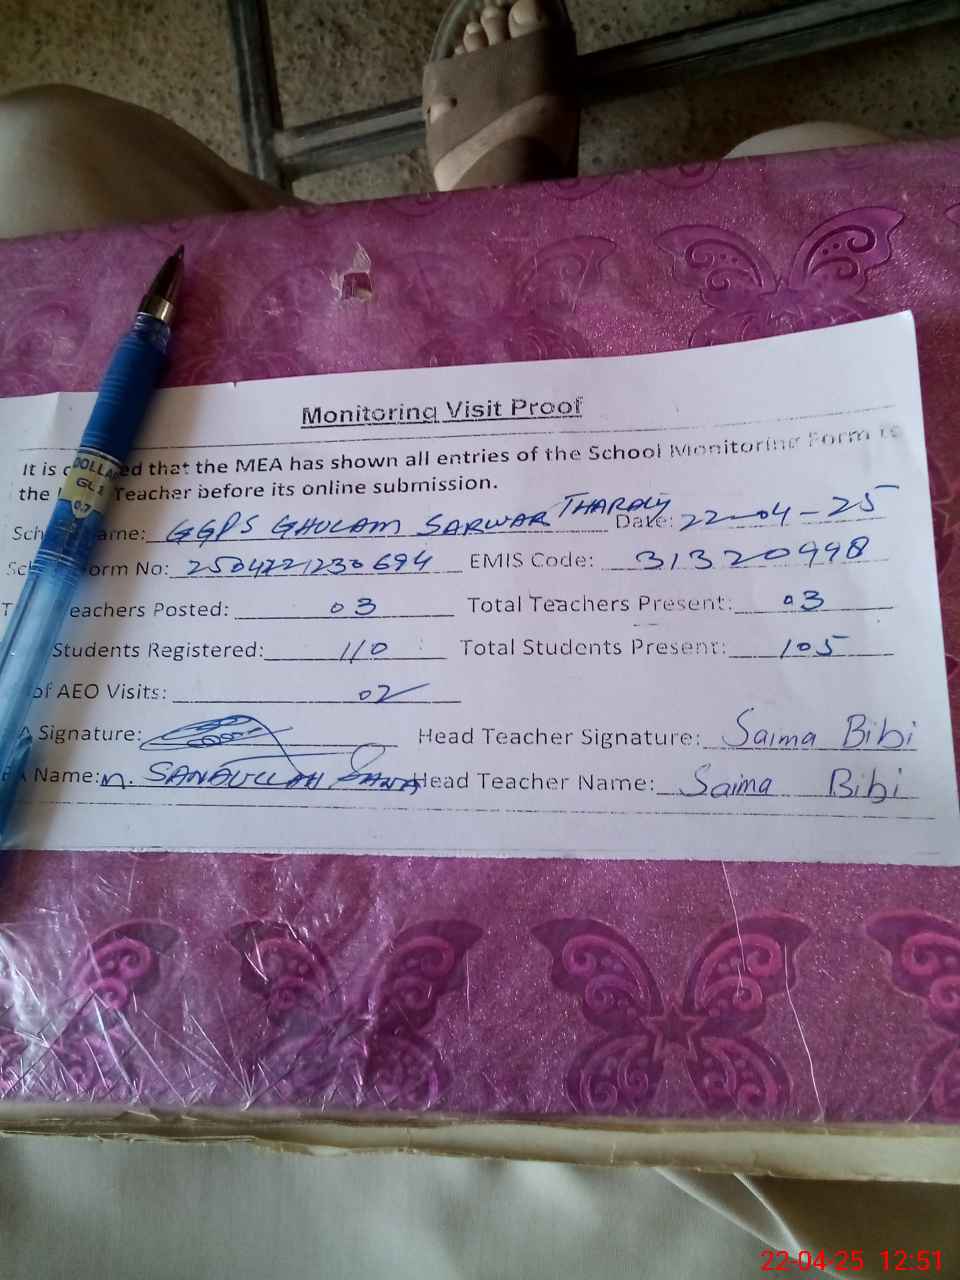 Monitoring Visit Proof
It is c ed that the MEA has shown all entries of the School Monitoring Form to
the Teacher before its online submission.
Sch ame: GGPS GHULAM SARWAR THARALY Date: 22-04-25
Sc orm No: 2504221230694 EMIS Code: 31320998
T eachers Posted: 03 Total Teachers Present: 03
Students Registered: 110 Total Students Present: 105
of AEO Visits: 02
A Signature: Head Teacher Signature: Saima Bibi
A Name: M. SANAULLAH SANA Head Teacher Name: Saima Bibi
DOLLA
GL
0.7
22-04-25 12:51